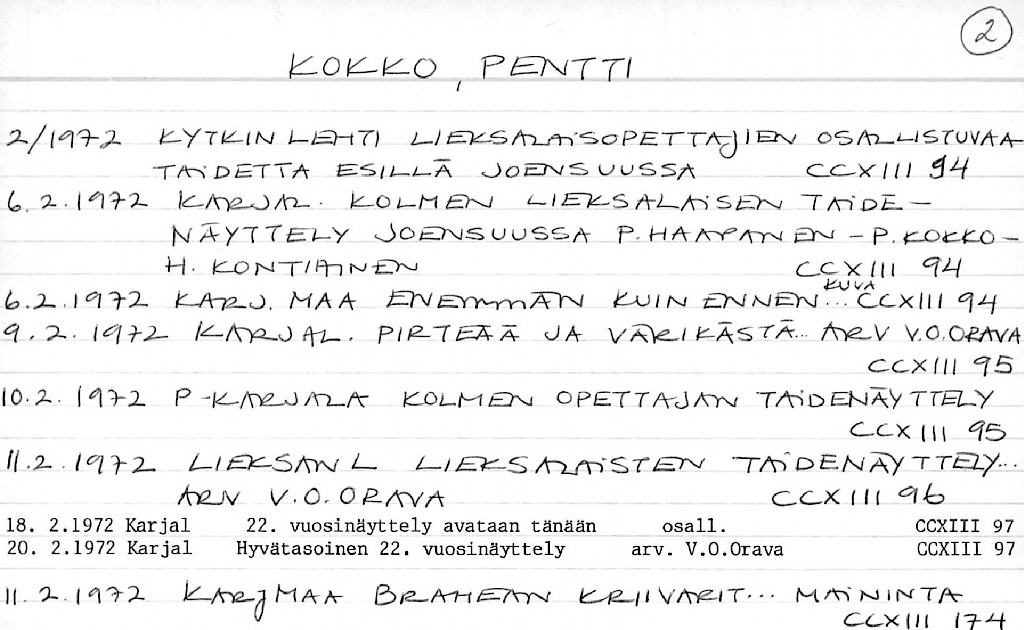 2
KOKKO, PENTTI
2/1972 KYTKIN LEHTI LIEKSALAISOPETTAJIEN OSALLISTUVAA
TAIDETTA ESILLÄ JOENSUUSSA CCXIII 94
6.2.1972 KARJAL. KOLMEN LIEKSALAISEN TAIDE-
NÄYTTELY JOENSUUSSA P. HAAPANEN - P. KOKKO -
H. KONTIAINEN CCXIII 94
KUVA
6.2.1972 KARJ. MAA ENEMMÄN KUIN ENNEN... CCXIII 94
9.2.1972 KARJAL. PIRTEÄÄ JA VÄRIKÄSTÄ... ARV V.O.ORAVA
CCXIII 95
10.2.1972 P-KARJALA KOLMEN OPETTAJAN TAIDENÄYTTELY
CCXIII 95
11.2.1972 LIEKSAN L LIEKSALAISTEN TAIDENÄYTTELY...
ARV V.O.ORAVA CCXIII 96
18. 2.1972 Karjal 22. vuosinäyttely avataan tänään osall. CCXIII 97
20. 2.1972 Karjal Hyvätasoinen 22. vuosinäyttely arv. V.O.Orava CCXIII 97
11.2.1972 KARJMAA BRAHEAN KRIIVARIT... MAININTA
CCXIII 174